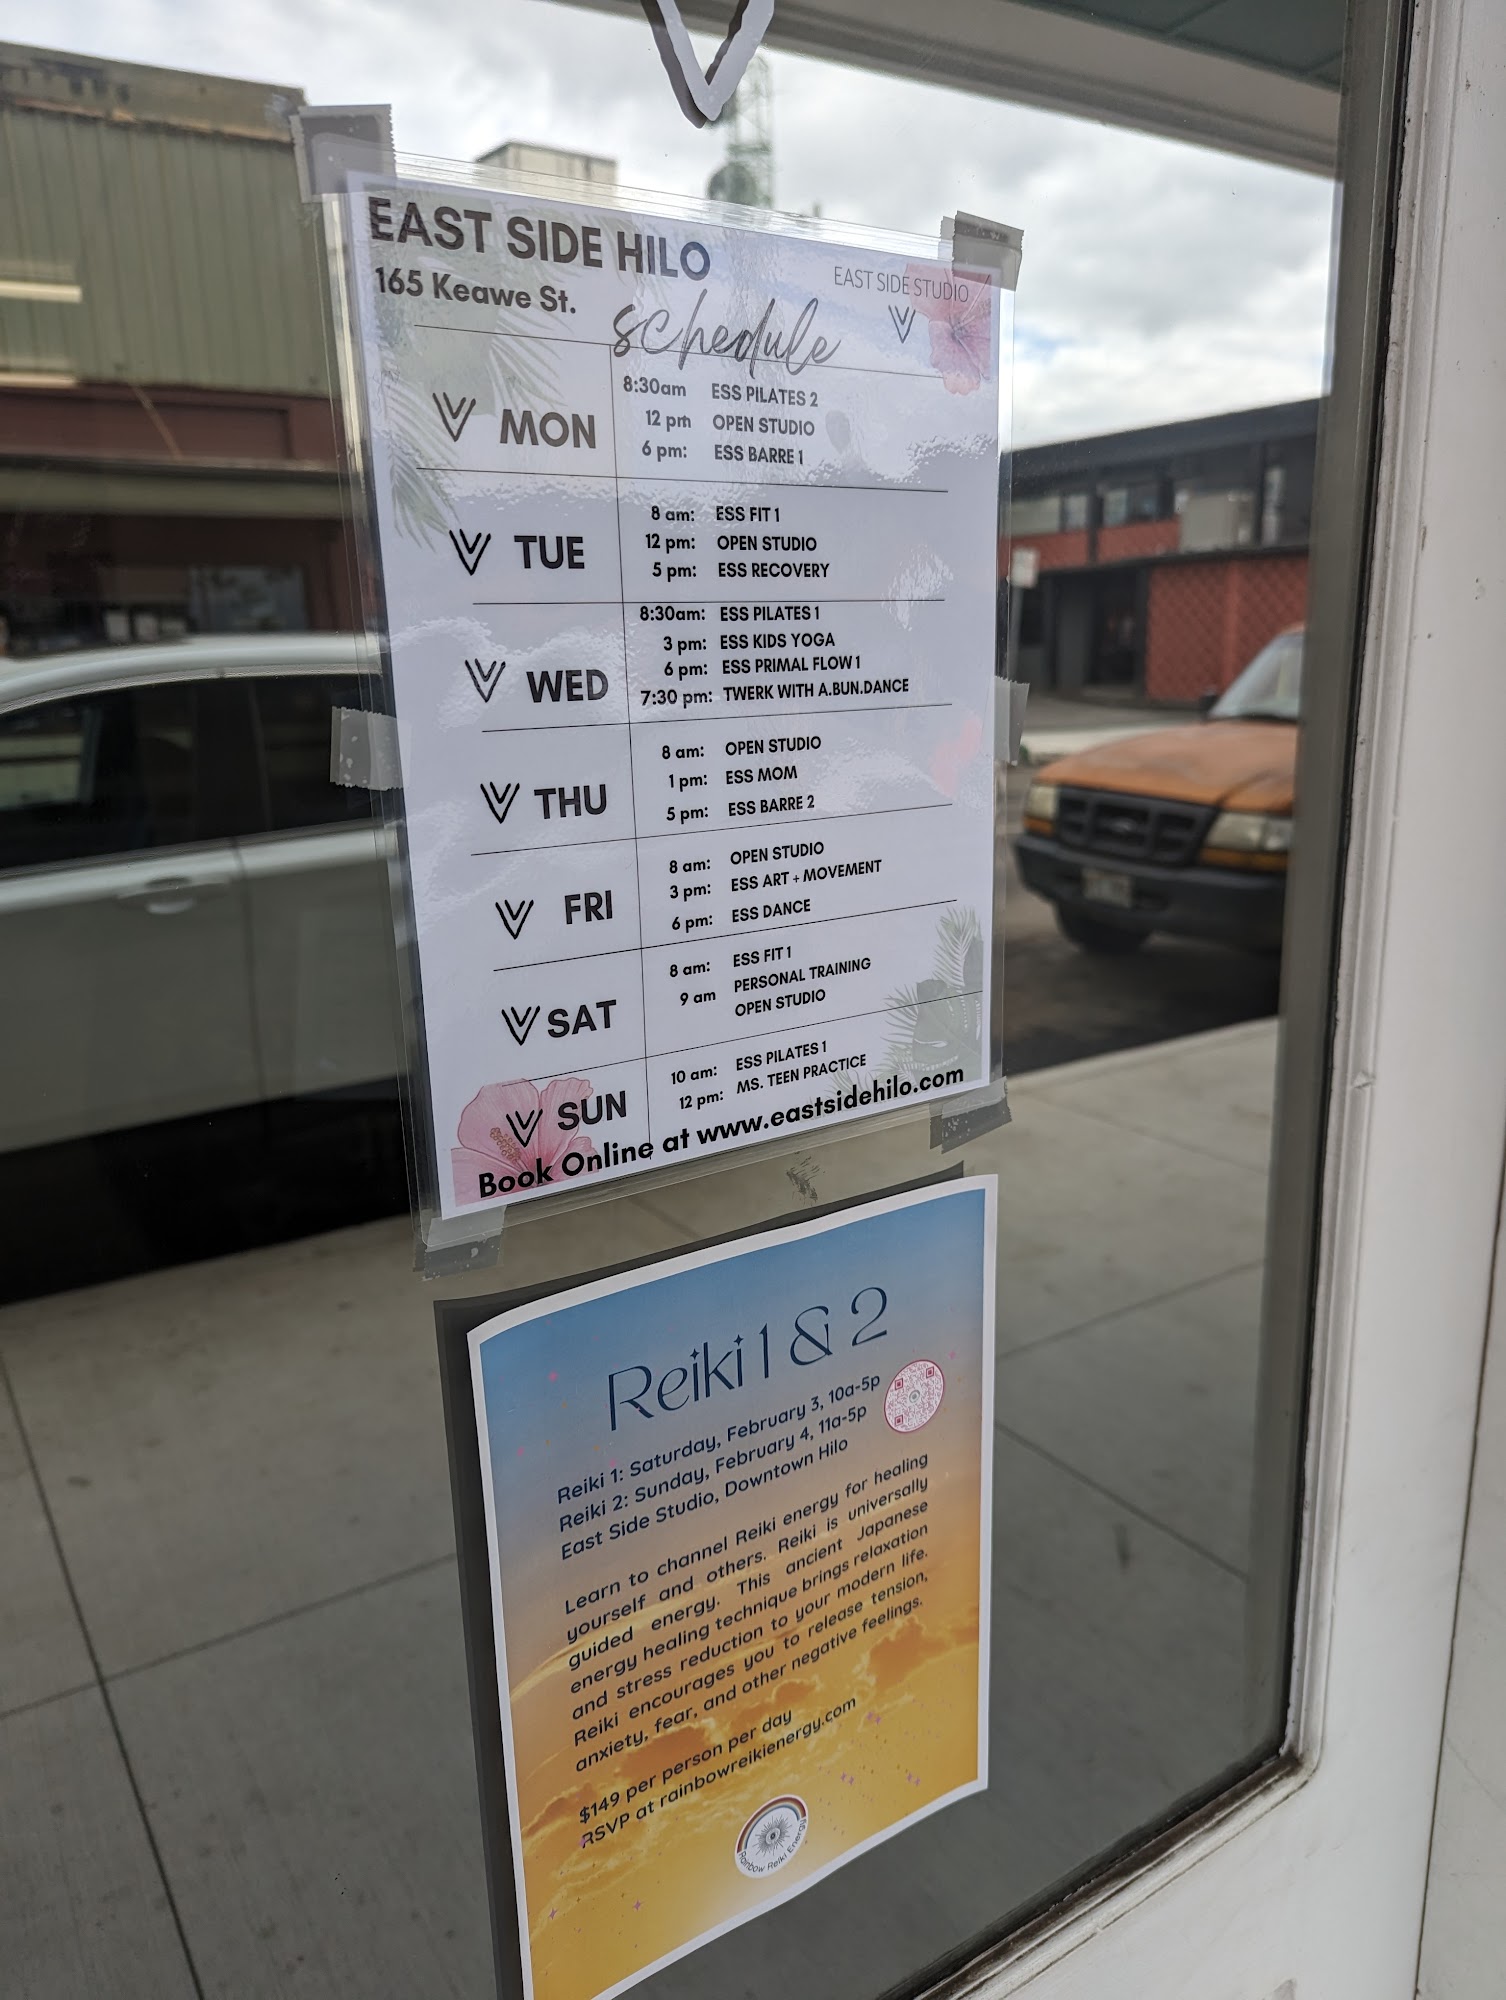 EAST SIDE HILO
165 Keawe St.
EAST SIDE STUDIO
schedule
MON
8:30am ESS PILATES 2
12 pm OPEN STUDIO
6 pm: ESS BARRE 1
TUE
8 am: ESS FIT 1
12 pm: OPEN STUDIO
5 pm: ESS RECOVERY
WED
8:30am: ESS PILATES 1
3 pm: ESS KIDS YOGA
6 pm: ESS PRIMAL FLOW 1
7:30 pm: TWERK WITH A.BUN.DANCE
THU
8 am: OPEN STUDIO
1 pm: ESS MOM
5 pm: ESS BARRE 2
FRI
8 am: OPEN STUDIO
3 pm: ESS ART + MOVEMENT
6 pm: ESS DANCE
SAT
8 am: ESS FIT 1
9 am PERSONAL TRAINING
OPEN STUDIO
SUN
10 am: ESS PILATES 1
12 pm: MS. TEEN PRACTICE
Book Online at www.eastsidehilo.com
Reiki 1 & 2
Reiki 1: Saturday, February 3, 10a-5p
Reiki 2: Sunday, February 4, 11a-5p
East Side Studio, Downtown Hilo
Learn to channel Reiki energy for healing
yourself and others. Reiki is universally
guided energy. This ancient Japanese
energy healing technique brings relaxation
and stress reduction to your modern life.
Reiki encourages you to release tension,
anxiety, fear, and other negative feelings.
$149 per person per day
RSVP at rainbowreikienergy.com
Rainbow Reiki Energy